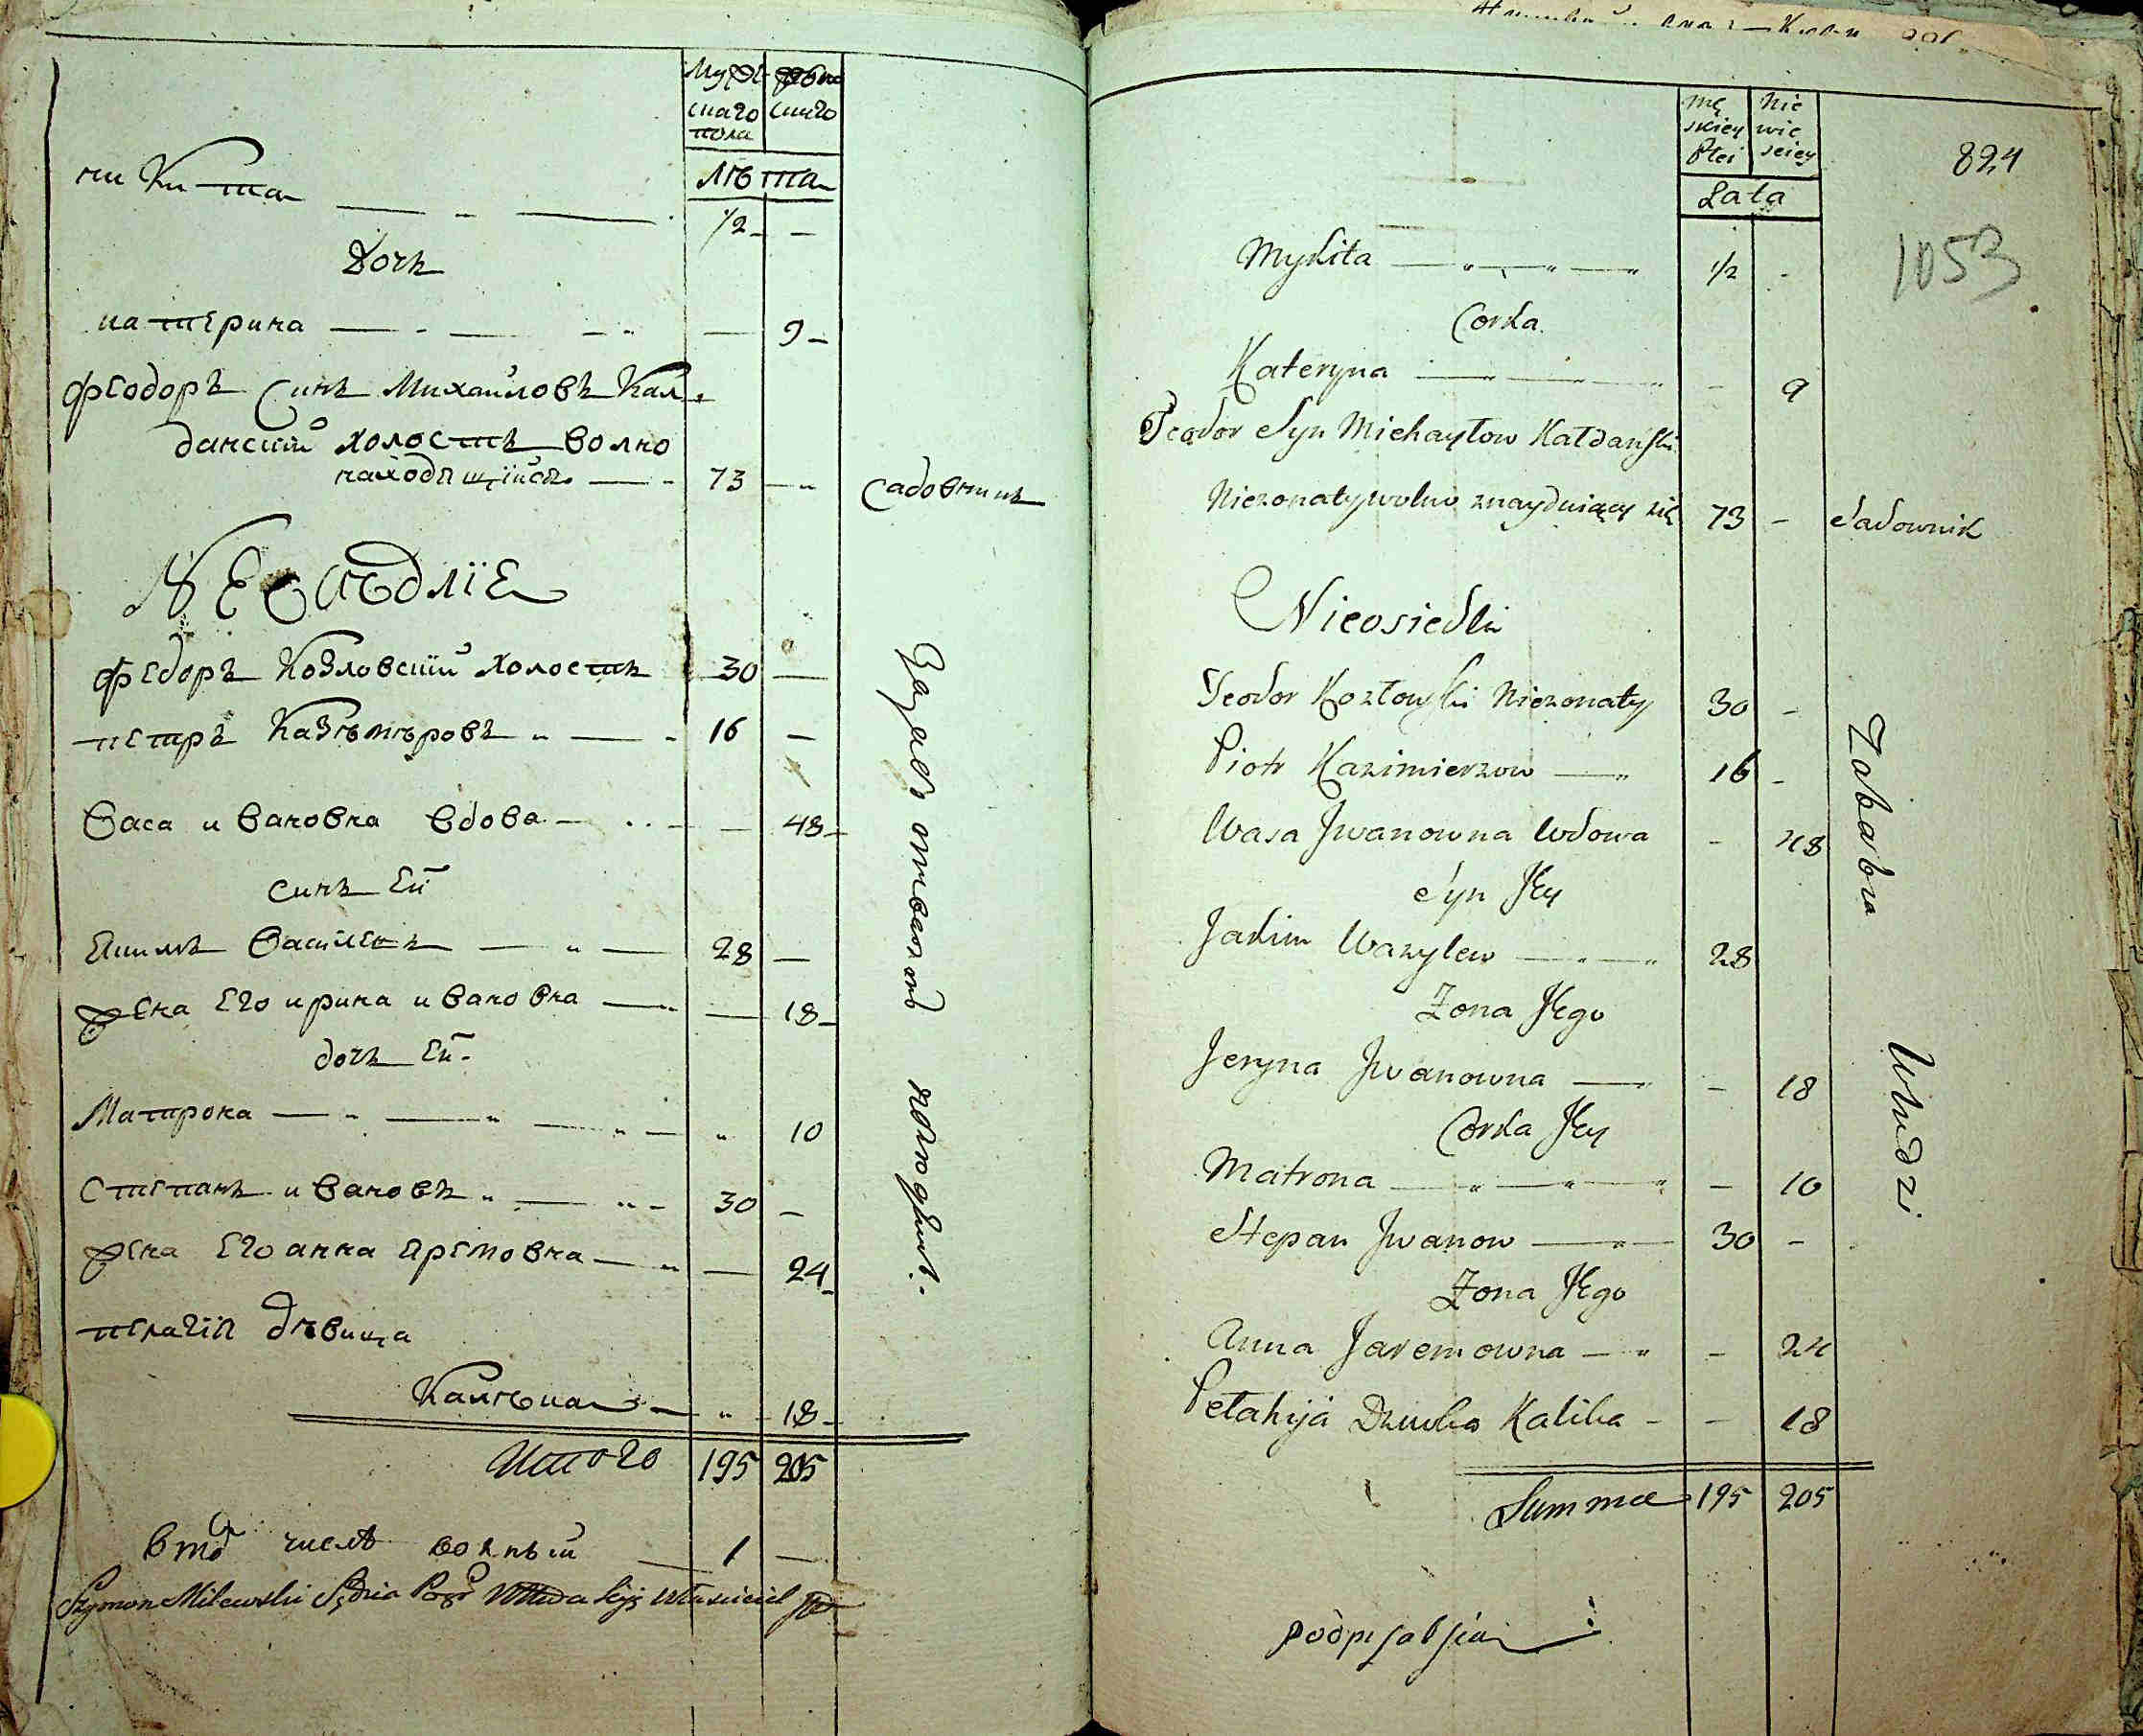 Мужескаго пола
женскаго
лѣта
никита — — 1/2 —
Дочь
катерина — — — 9
Феодоръ Синъ Михайловъ Кал
данский холостъ волно
находящийся — 73 — Садовникъ
Неосѣдліе
Федоръ Козловский холостъ 30 —
петръ Казѣмѣровъ — 16 —
Васа ивановна вдова — — 48
Синъ Ей
Якимъ Василевъ — 28 —
жена Его ирина ивановна — — 18
дочь Ей
Матрона — — — 10
Степанъ ивановъ — 30 —
жена Его анна яремовна — — 24
пелагія дѣвица
Калѣка — — 18
Итого 195 205
в том числѣ волный — 1 —
Szymon Milewski Sędzia właściciel
męskiey płci
Niewieściey
Lata
824
1053
Mykita — — — 1/2 -
Corka
Kateryna — — — - 9
Teodor Syn Michayłow Kałdański
Niezonaty wolno znayduiący się 73 - Sadownik
Nieosiedli
Teodor Kozłowski Niezonaty 30 -
Piotr Kazimierzow — 16 -
Wasa Jwanowna Wdowa - 48
Syn Jey
Jakim Wazylew — — 28
Zona Jego
Jeryna Jwanowna — - 18
Corka Jey
Matrona — — — - 10
Stepan Jwanow — 30 -
Zona Jego
Anna Jaremowna — - 24
Pełahija Dziwka Kalika - - 18
Summa 195 205
podpisałsia